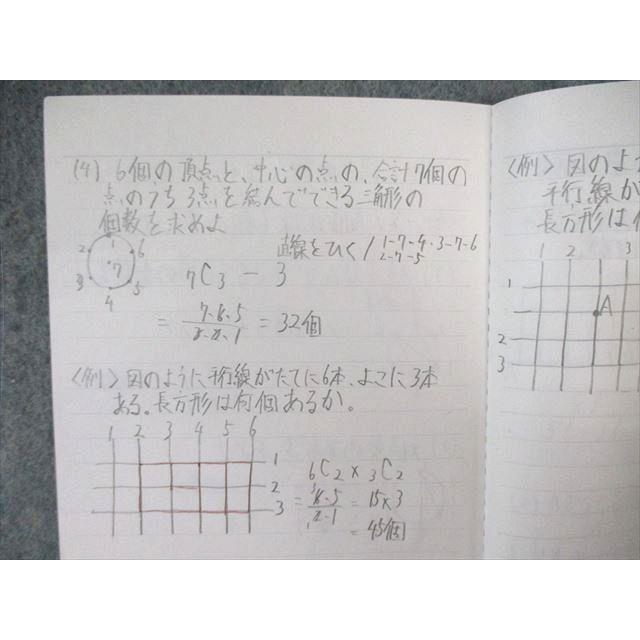 (4) 6個の頂点と、中心の点の、合計7個の
点のうち3点を結んでできる三角形の
個数を求めよ
1
2 6
7
3 5
4
直線をひく/1-7-4・3-7-6
2-7-5
7C3 - 3
= 7・6・5/3・2・1 = 32個
〈例〉図のように平行線がたてに6本、よこに3本
ある。長方形は何個あるか。
1 2 3 4 5 6
1
2
3
6C2 × 3C2
= 6・5/2・1 = 15×3
= 45個
〈例〉図のよ
平行線が
長方形は
1 2 3
1
A
2
3